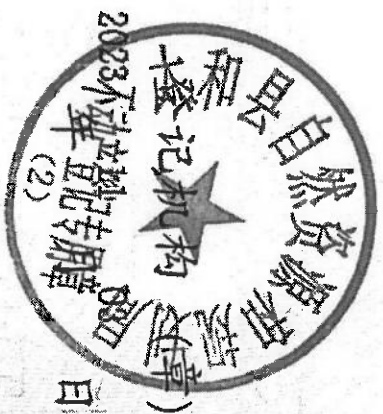 县自然资源和规划局
登记机构(章)
不动产登记专用章
(2)
2023年
日